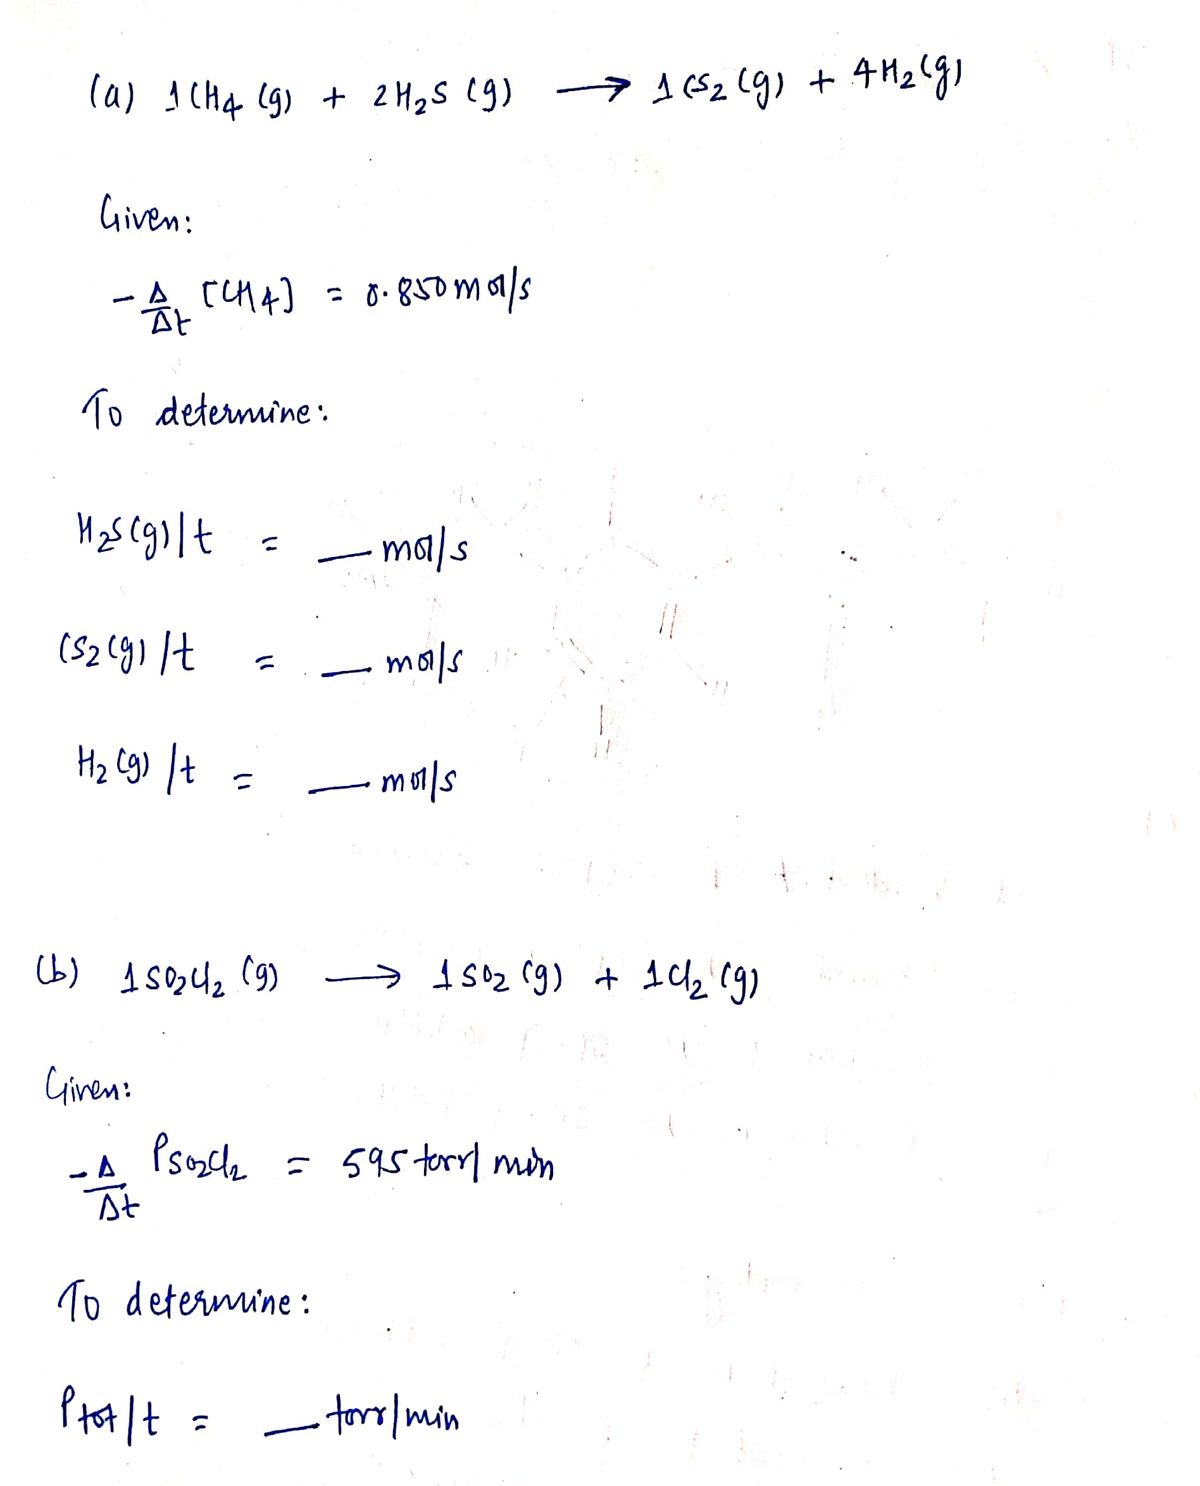 (a) 1CH4 (g) + 2H2S (g) ⟶ 1CS2 (g) + 4H2(g)
Given:
-Δ/Δt [CH4] = 0.850 mol/s
To determine:
H2S(g)/t = __ mol/s
CS2(g)/t = __ mol/s
H2(g)/t = __ mol/s
(b) 1SO2Cl2 (g) ⟶ 1SO2 (g) + 1Cl2 (g)
Given:
-Δ/Δt PSO2Cl2 = 595 torr/min
To determine:
Ptot/t = __ torr/min